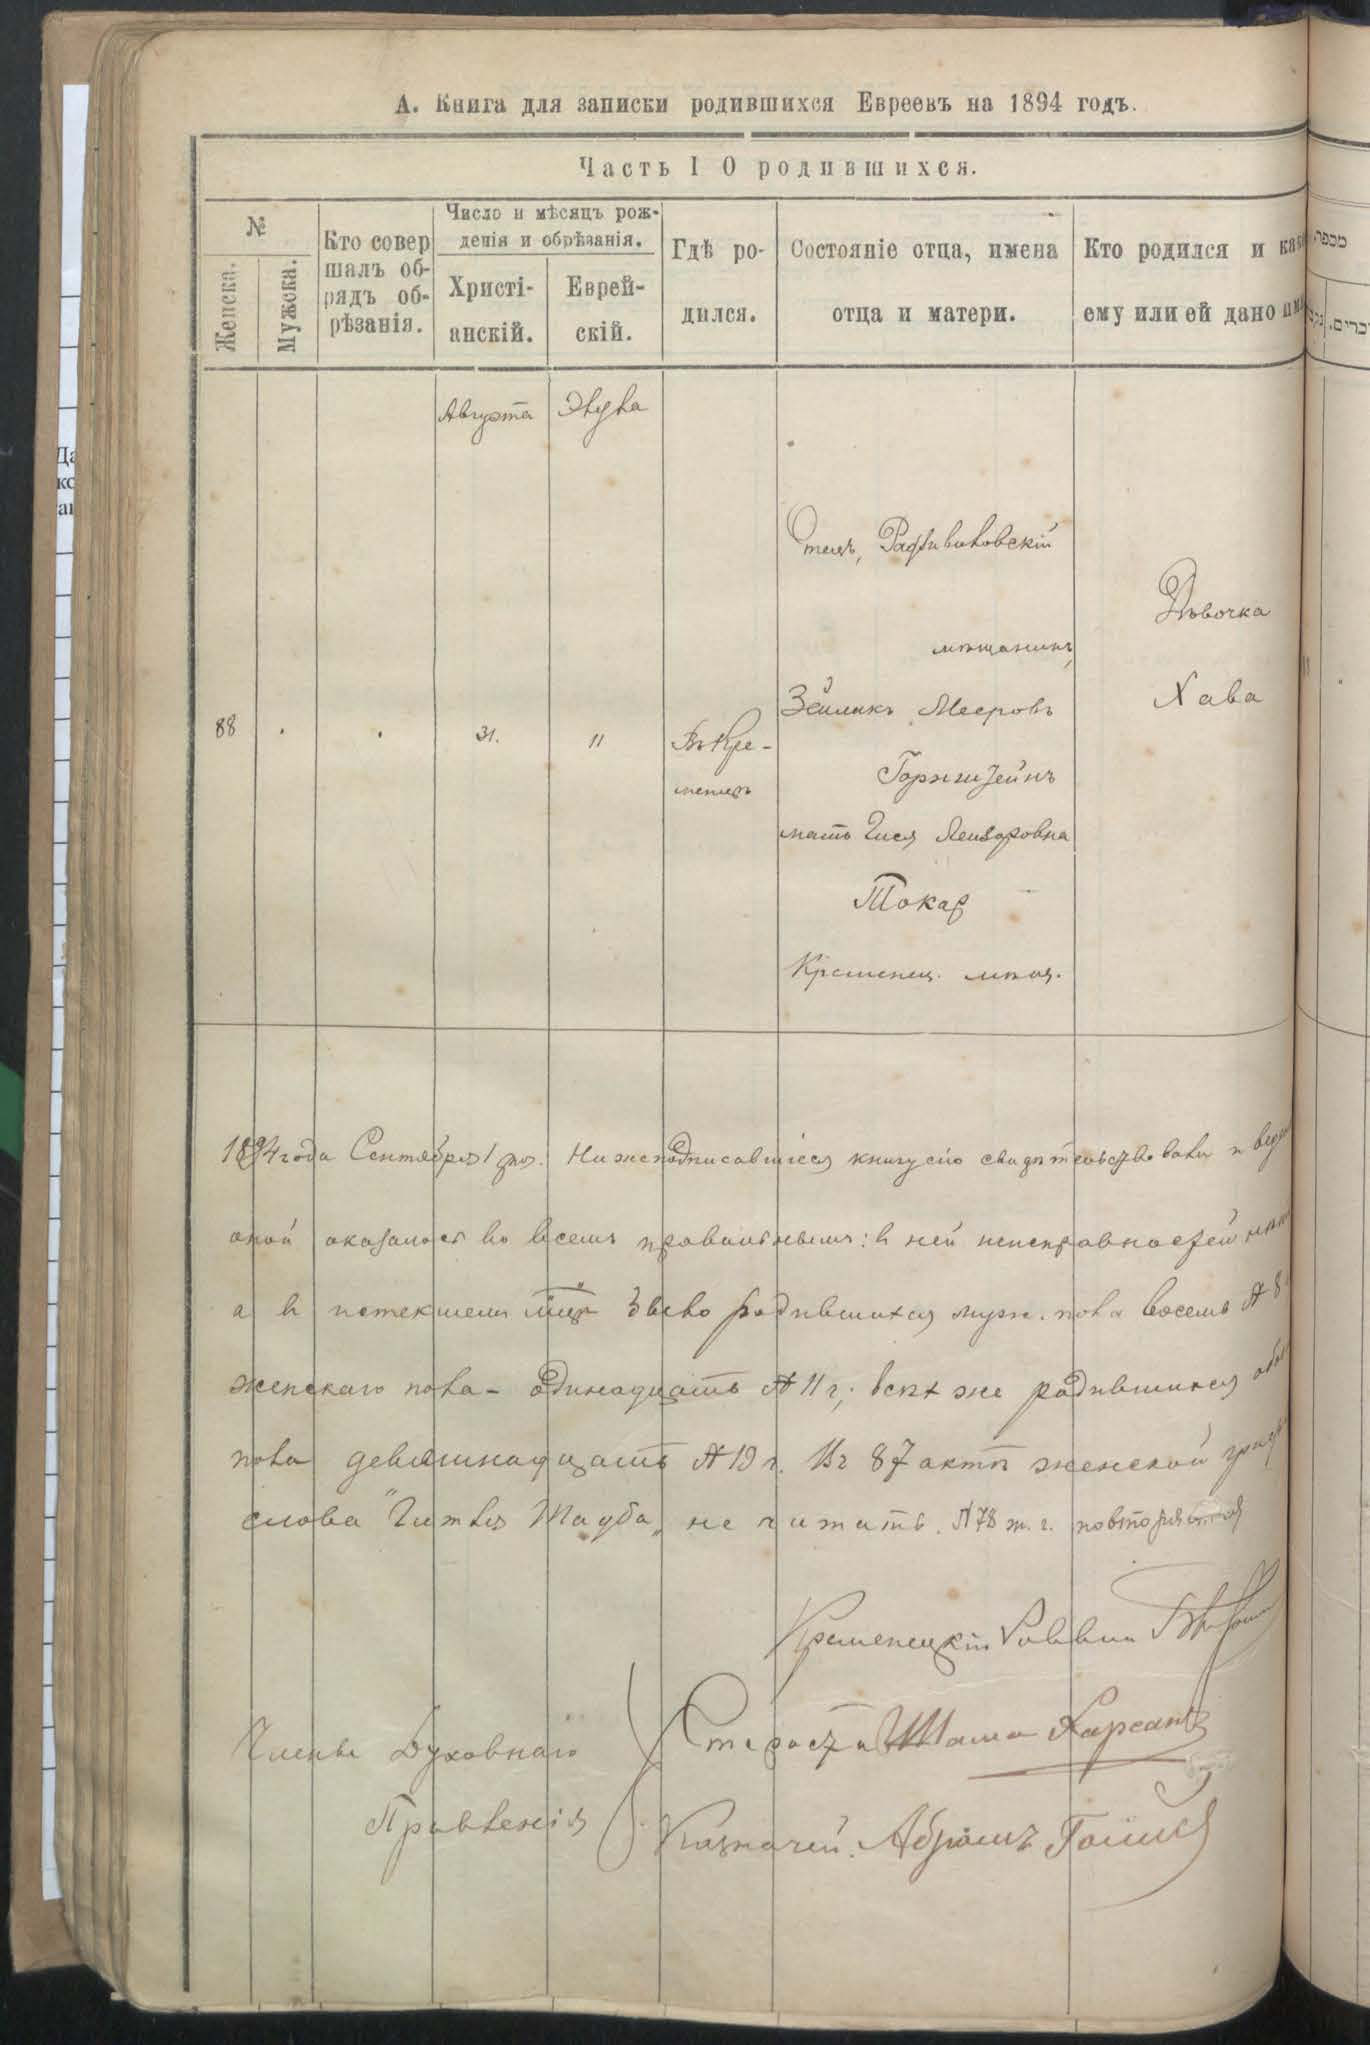 А. Книга для записки родившихся Евреевъ на 1894 годъ.
Часть I О родившихся.
№
Женска.
Мужска.
Кто совер
шалъ об-
рядъ об-
рѣзанія.
Число и мѣсяцъ рож-
денія и обрѣзанія.
Христі-
анскій.
Еврей-
скій.
Гдѣ ро-
дился.
Состояніе отца, имена
отца и матери.
Кто родился и
ему или ей дано
Августа
Элула
88
31.
11
Въ Кре-
менцѣ
Отецъ, Радзивиловскій
мѣщанинъ,
Зейликъ Мееровъ
Горнштейнъ
мать Гися Лейзоровна
Токар
Кременец. мѣщ.
Дѣвочка
Хава
1894 года Сентября 1 дня. Нижеподписавшіеся книгу сію свидѣтельствовали и
оной оказалось во всемъ правильнымъ: в ней неисправностей
а в истекшемъ мцѣ родившихся муж. пола восемь № 8
женскаго пола - одинадцать № 11 г; всѣх же родившихся
пола девятнадцать № 19 г. Въ 87 актѣ женской
слова "Гитля Тауба" не читать. № 78 ж. г. повторяется
Кременецкій Раввин
Члены Духовнаго
Правленія
Староста Шама
Казначей. Абрамъ